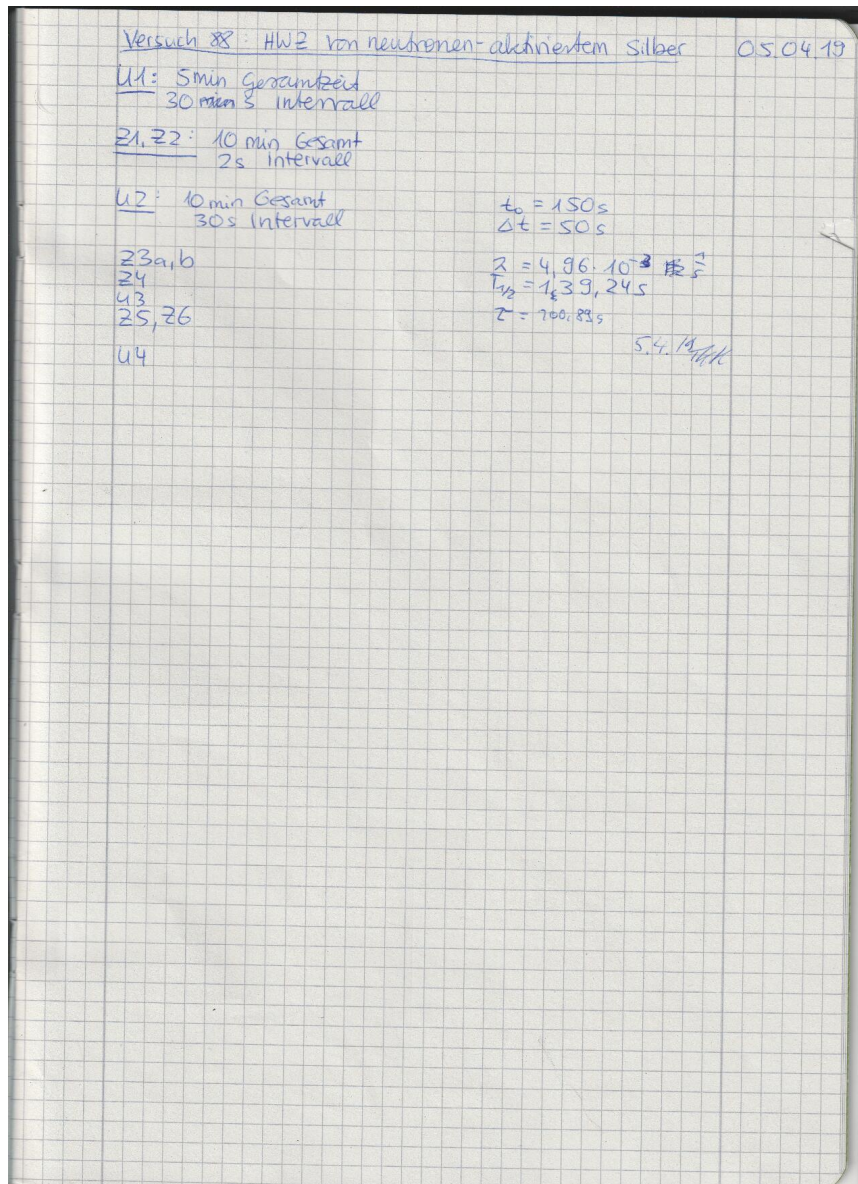 Versuch 88: HWZ von neutronen-aktiviertem Silber 05.04.19
U1: 5min Gesamtzeit
30 s Intervall
Z1, Z2: 10 min Gesamt
2s Intervall
U2: 10min Gesamt
30s Intervall
t₀ = 150s
Δt = 50s
Z3a,b
Z4
U3
Z5, Z6
U4
λ = 4,96·10⁻³ 1/s
T1/2 = 139,24s
τ = 200,89s
5.4.19